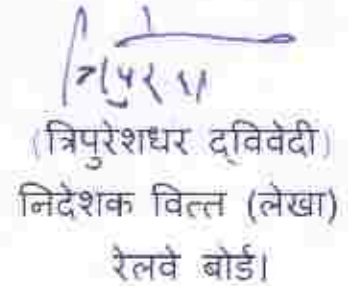 (त्रिपुरेशधर द्विवेदी)
निदेशक वित्त (लेखा)
रेलवे बोर्ड।